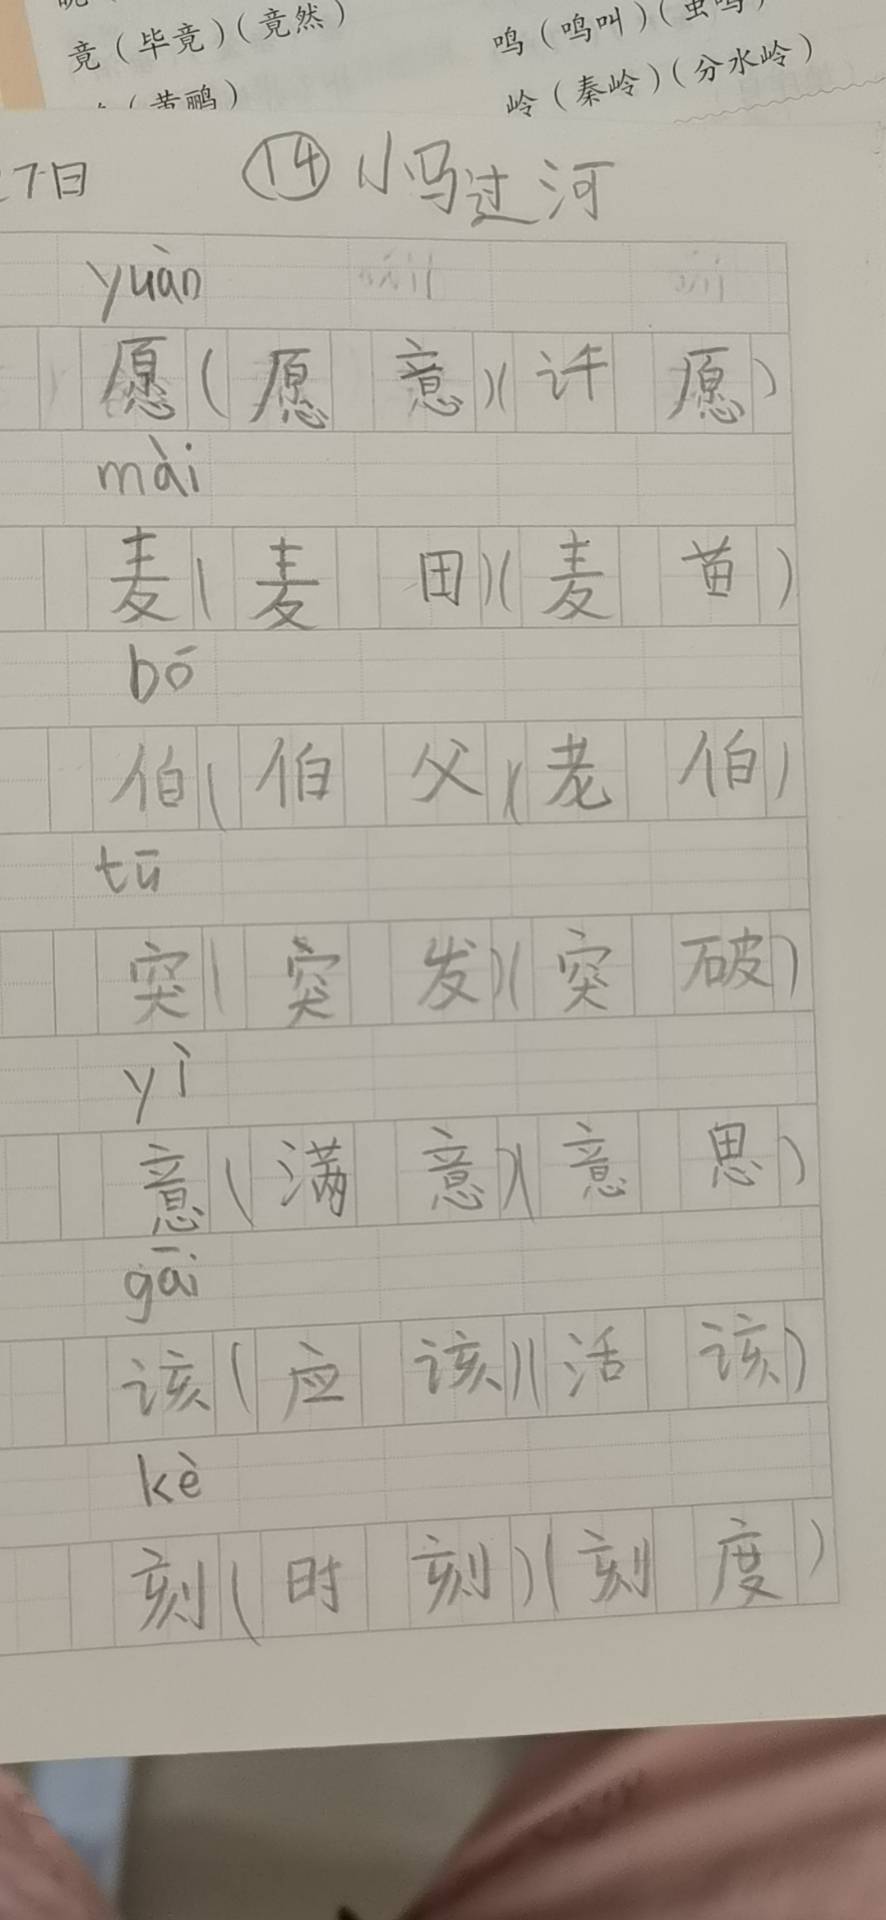 竟（毕竟）（竟然）
鸣（鸣叫）（虫鸣）
（黄鹂）
岭（秦岭）（分水岭）
7日 ⑭ 小马过河
yuàn
愿（愿意）（许愿）
mài
麦（麦田）（麦苗）
bó
伯（伯父）（老伯）
tū
突（突发）（突破）
yì
意（满意）（意思）
gāi
该（应该）（活该）
kè
刻（时刻）（刻度）